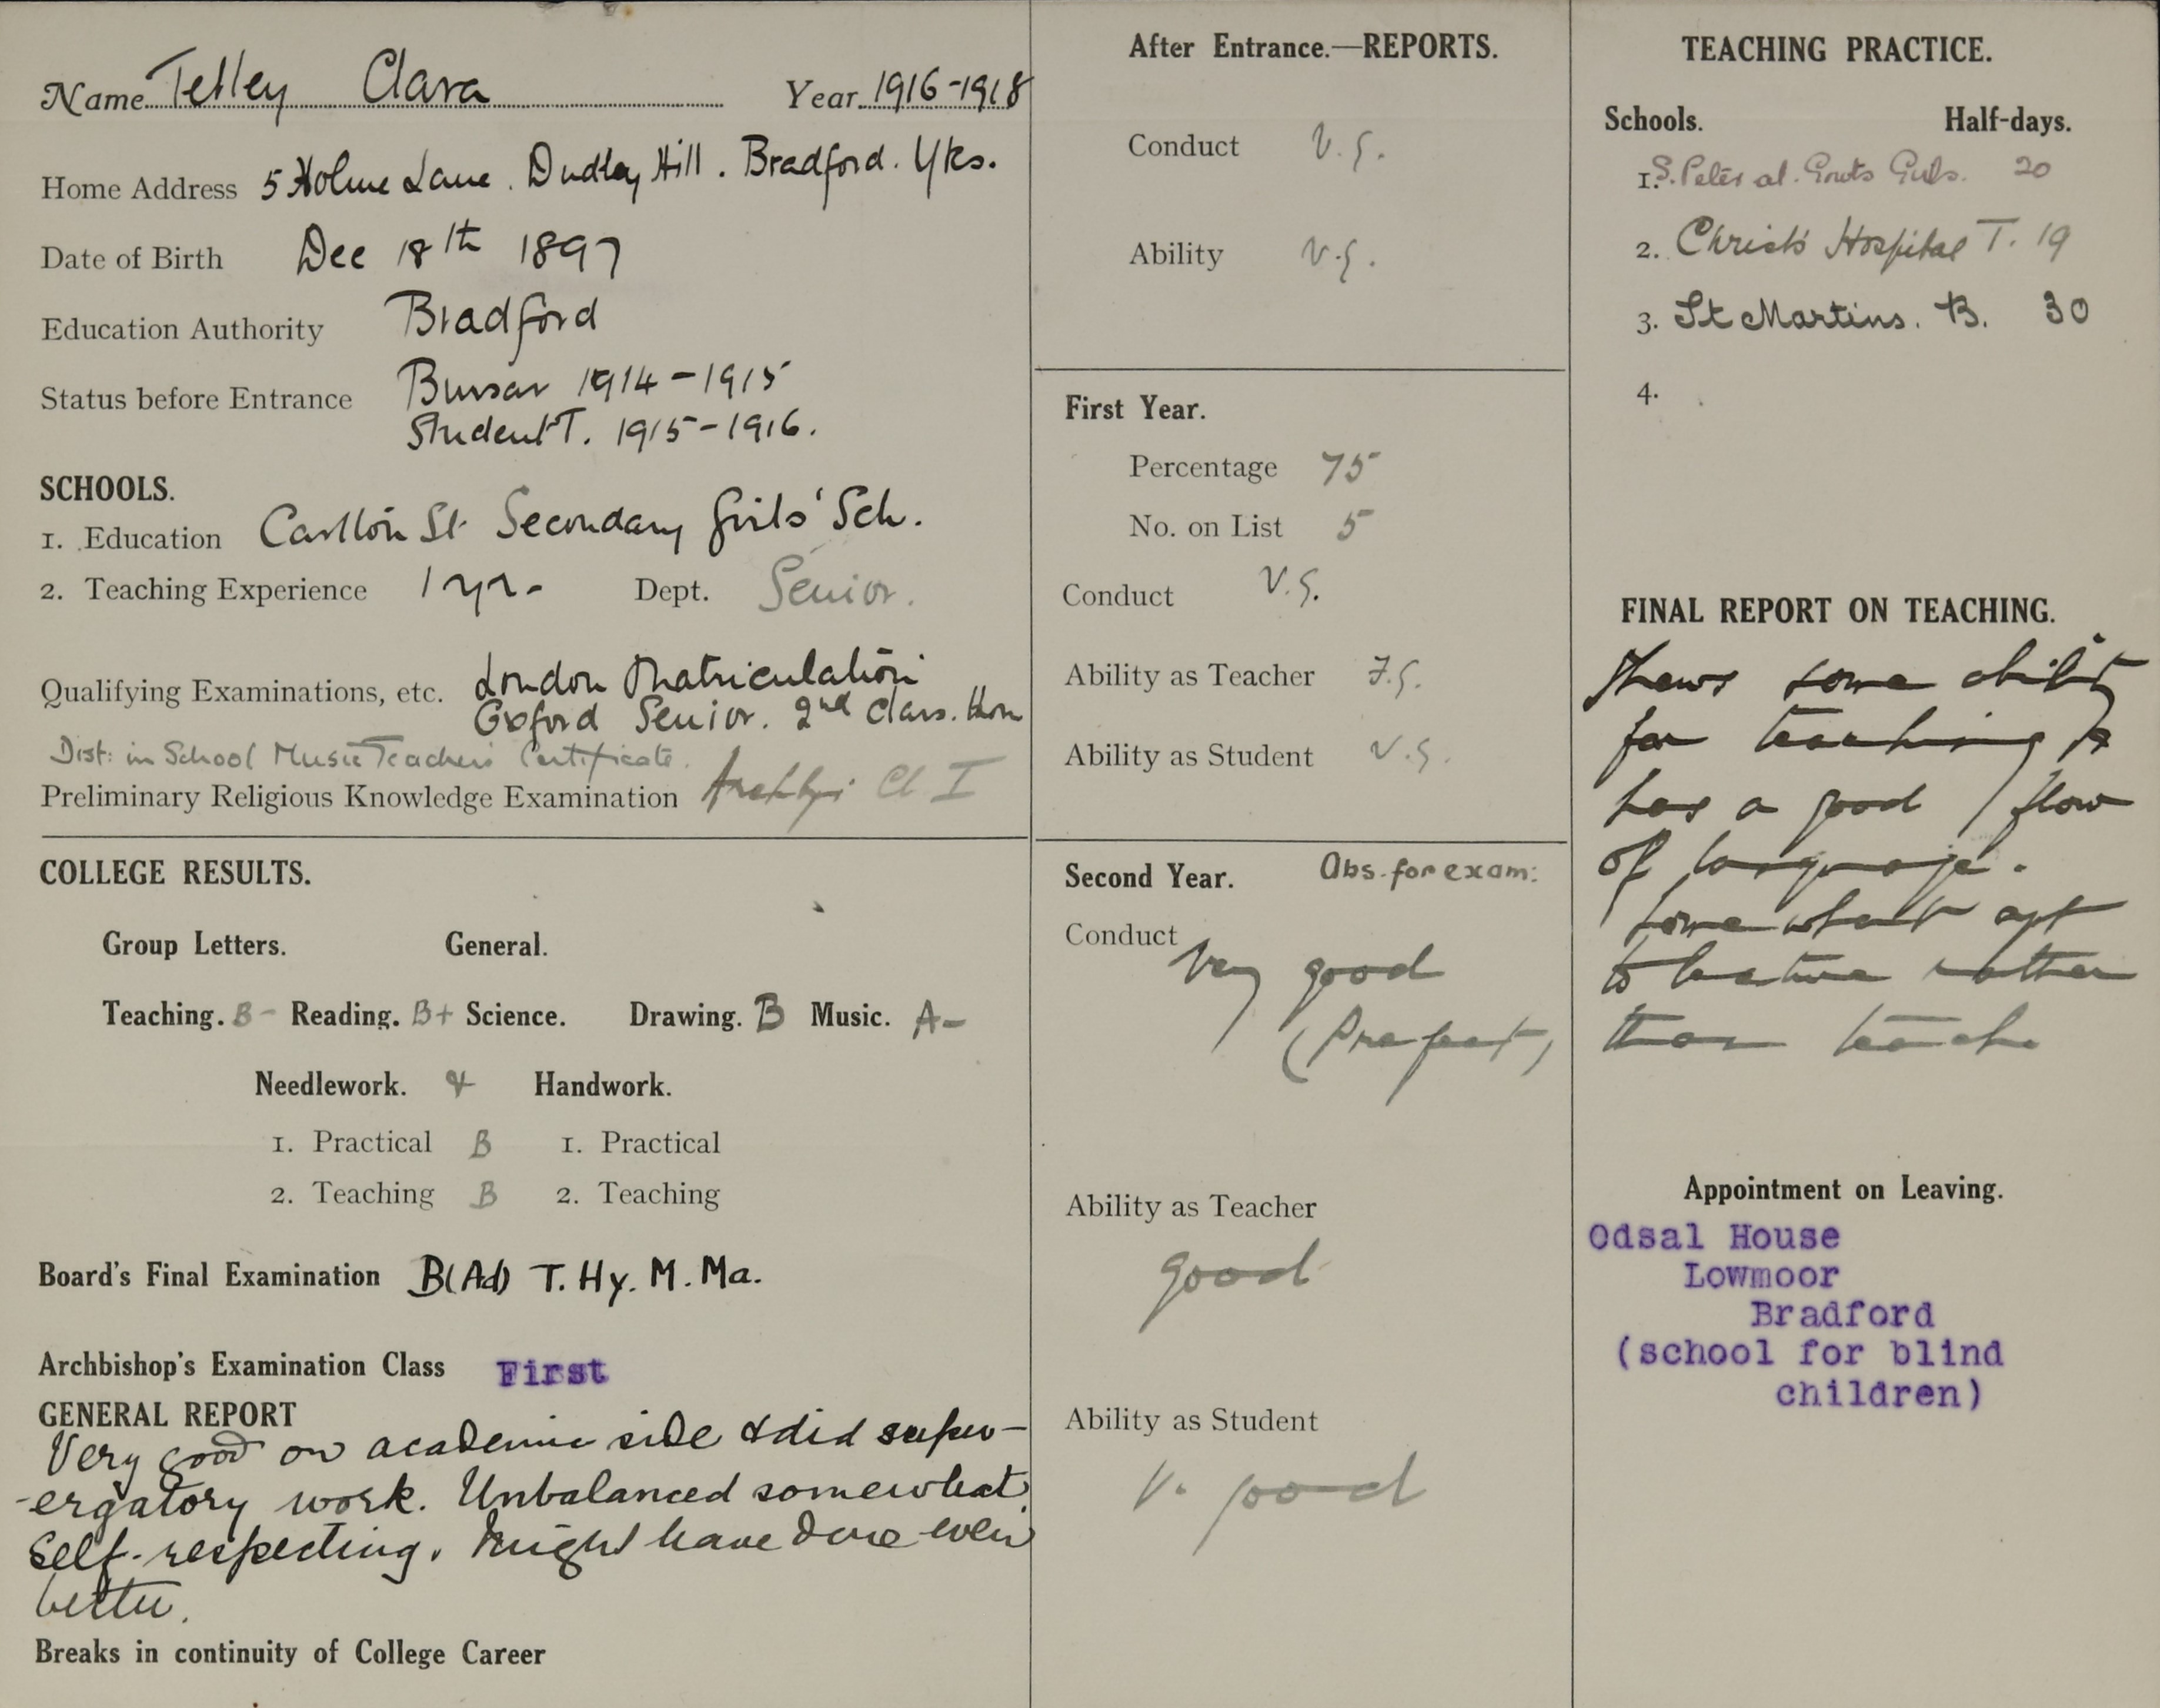 Name Tetley Clara Year 1916-1918
Home Address 5 Holme Lane. Dudley Hill. Bradford. Yks.
Date of Birth Dec 18th 1897
Education Authority Bradford
Status before Entrance Bursar 1914-1915
Student T. 1915-1916.
SCHOOLS.
1. Education Carlton St Secondary Girls' Sch.
2. Teaching Experience 1 yr. Dept. Senior.
Qualifying Examinations, etc. London Matriculation
Oxford Senior. 2nd Class. Hon
Dist: in School Music Teachers Certificate.
Preliminary Religious Knowledge Examination Archbps Cl. I
COLLEGE RESULTS.
Group Letters. General.
Teaching. B- Reading. B+ Science. Drawing. B Music. A-
Needlework. & Handwork.
1. Practical B 1. Practical
2. Teaching B 2. Teaching
Board's Final Examination B(Ad) T. Hy. M. Ma.
Archbishop's Examination Class First
GENERAL REPORT
Very good on academic side & did super-
-ergatory work. Unbalanced somewhat.
Self-respecting. Might have done even
better.
Breaks in continuity of College Career
After Entrance.—REPORTS.
Conduct V.G.
Ability V.G.
First Year.
Percentage 75
No. on List 5
Conduct V.G.
Ability as Teacher F.G.
Ability as Student V.G.
Second Year. Abs. for exam:
Conduct
Very good
(Prefect)
Ability as Teacher
good
Ability as Student
V. good
TEACHING PRACTICE.
Schools. Half-days.
1. S. Peter at Gowts Girls. 20
2. Christ's Hospital T. 19
3. St Martins. B. 30
4.
FINAL REPORT ON TEACHING.
Shews some ability
for teaching &
has a good flow
of language.
Somewhat apt
to lecture rather
than teach
Appointment on Leaving.
Odsal House
Lowmoor
Bradford
(school for blind
children)